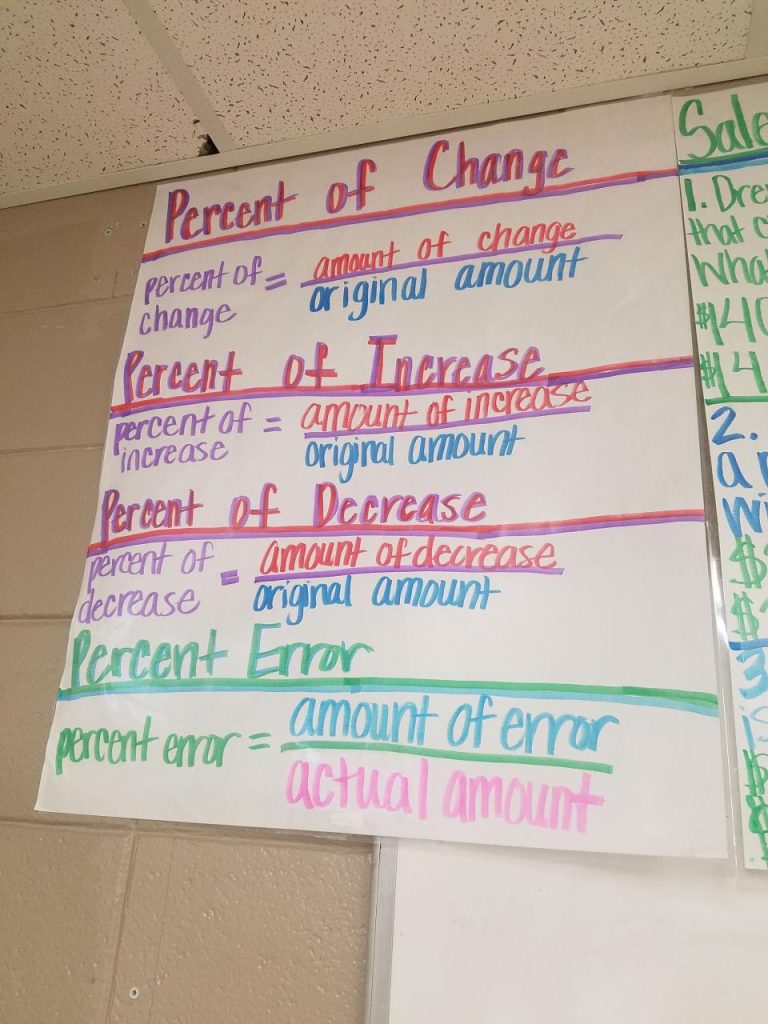 Percent of Change
percent of change = amount of change
original amount
Percent of Increase
percent of increase = amount of increase
original amount
Percent of Decrease
percent of decrease = amount of decrease
original amount
Percent Error
percent error = amount of error
actual amount
Sale
1.
that
$140
2.
a
3
$